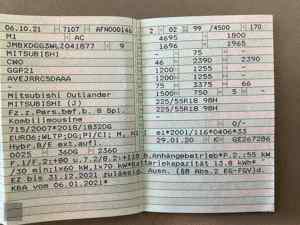 06.10.21 7107 AFN00014
M1 AC
JMBXDGG3WLZ041877 9
MITSUBISHI
CWO
GGP2I
AVEJRRC5DAAA
-
Mitsubishi Outlander
MITSUBISHI (J)
Fz.z.Pers.bef.b. 8 Spl.
Kombilimousine
715/2007*2018/1832DG
EURO6;WLTP;DG;PI/CI M, N1
Hybr.B/E ext.aufl.
0025 36DG 2360
F.1/F.2:+80 u.7.2/8.2:+110 b.Anhängebetrieb*P.2.:55 kW
/30 min;1x60 kW,1x70 kW*Batteriekapazität 13.8 kWh*
EZ bis 31.12.2021 zulässig. Ausn. (§8 Abs.2 EG-FGV)d.
KBA vom 06.01.2021*
2 02 99 /4500 170
4695 1800
1696 1965
75
46 2390 2390
1200 1255
1200 1255
75 3375 66
1500 750 5
225/55R18 98H
225/55R18 98H
-
e1*2001/116*0406*33
29.01.20 K GE267286